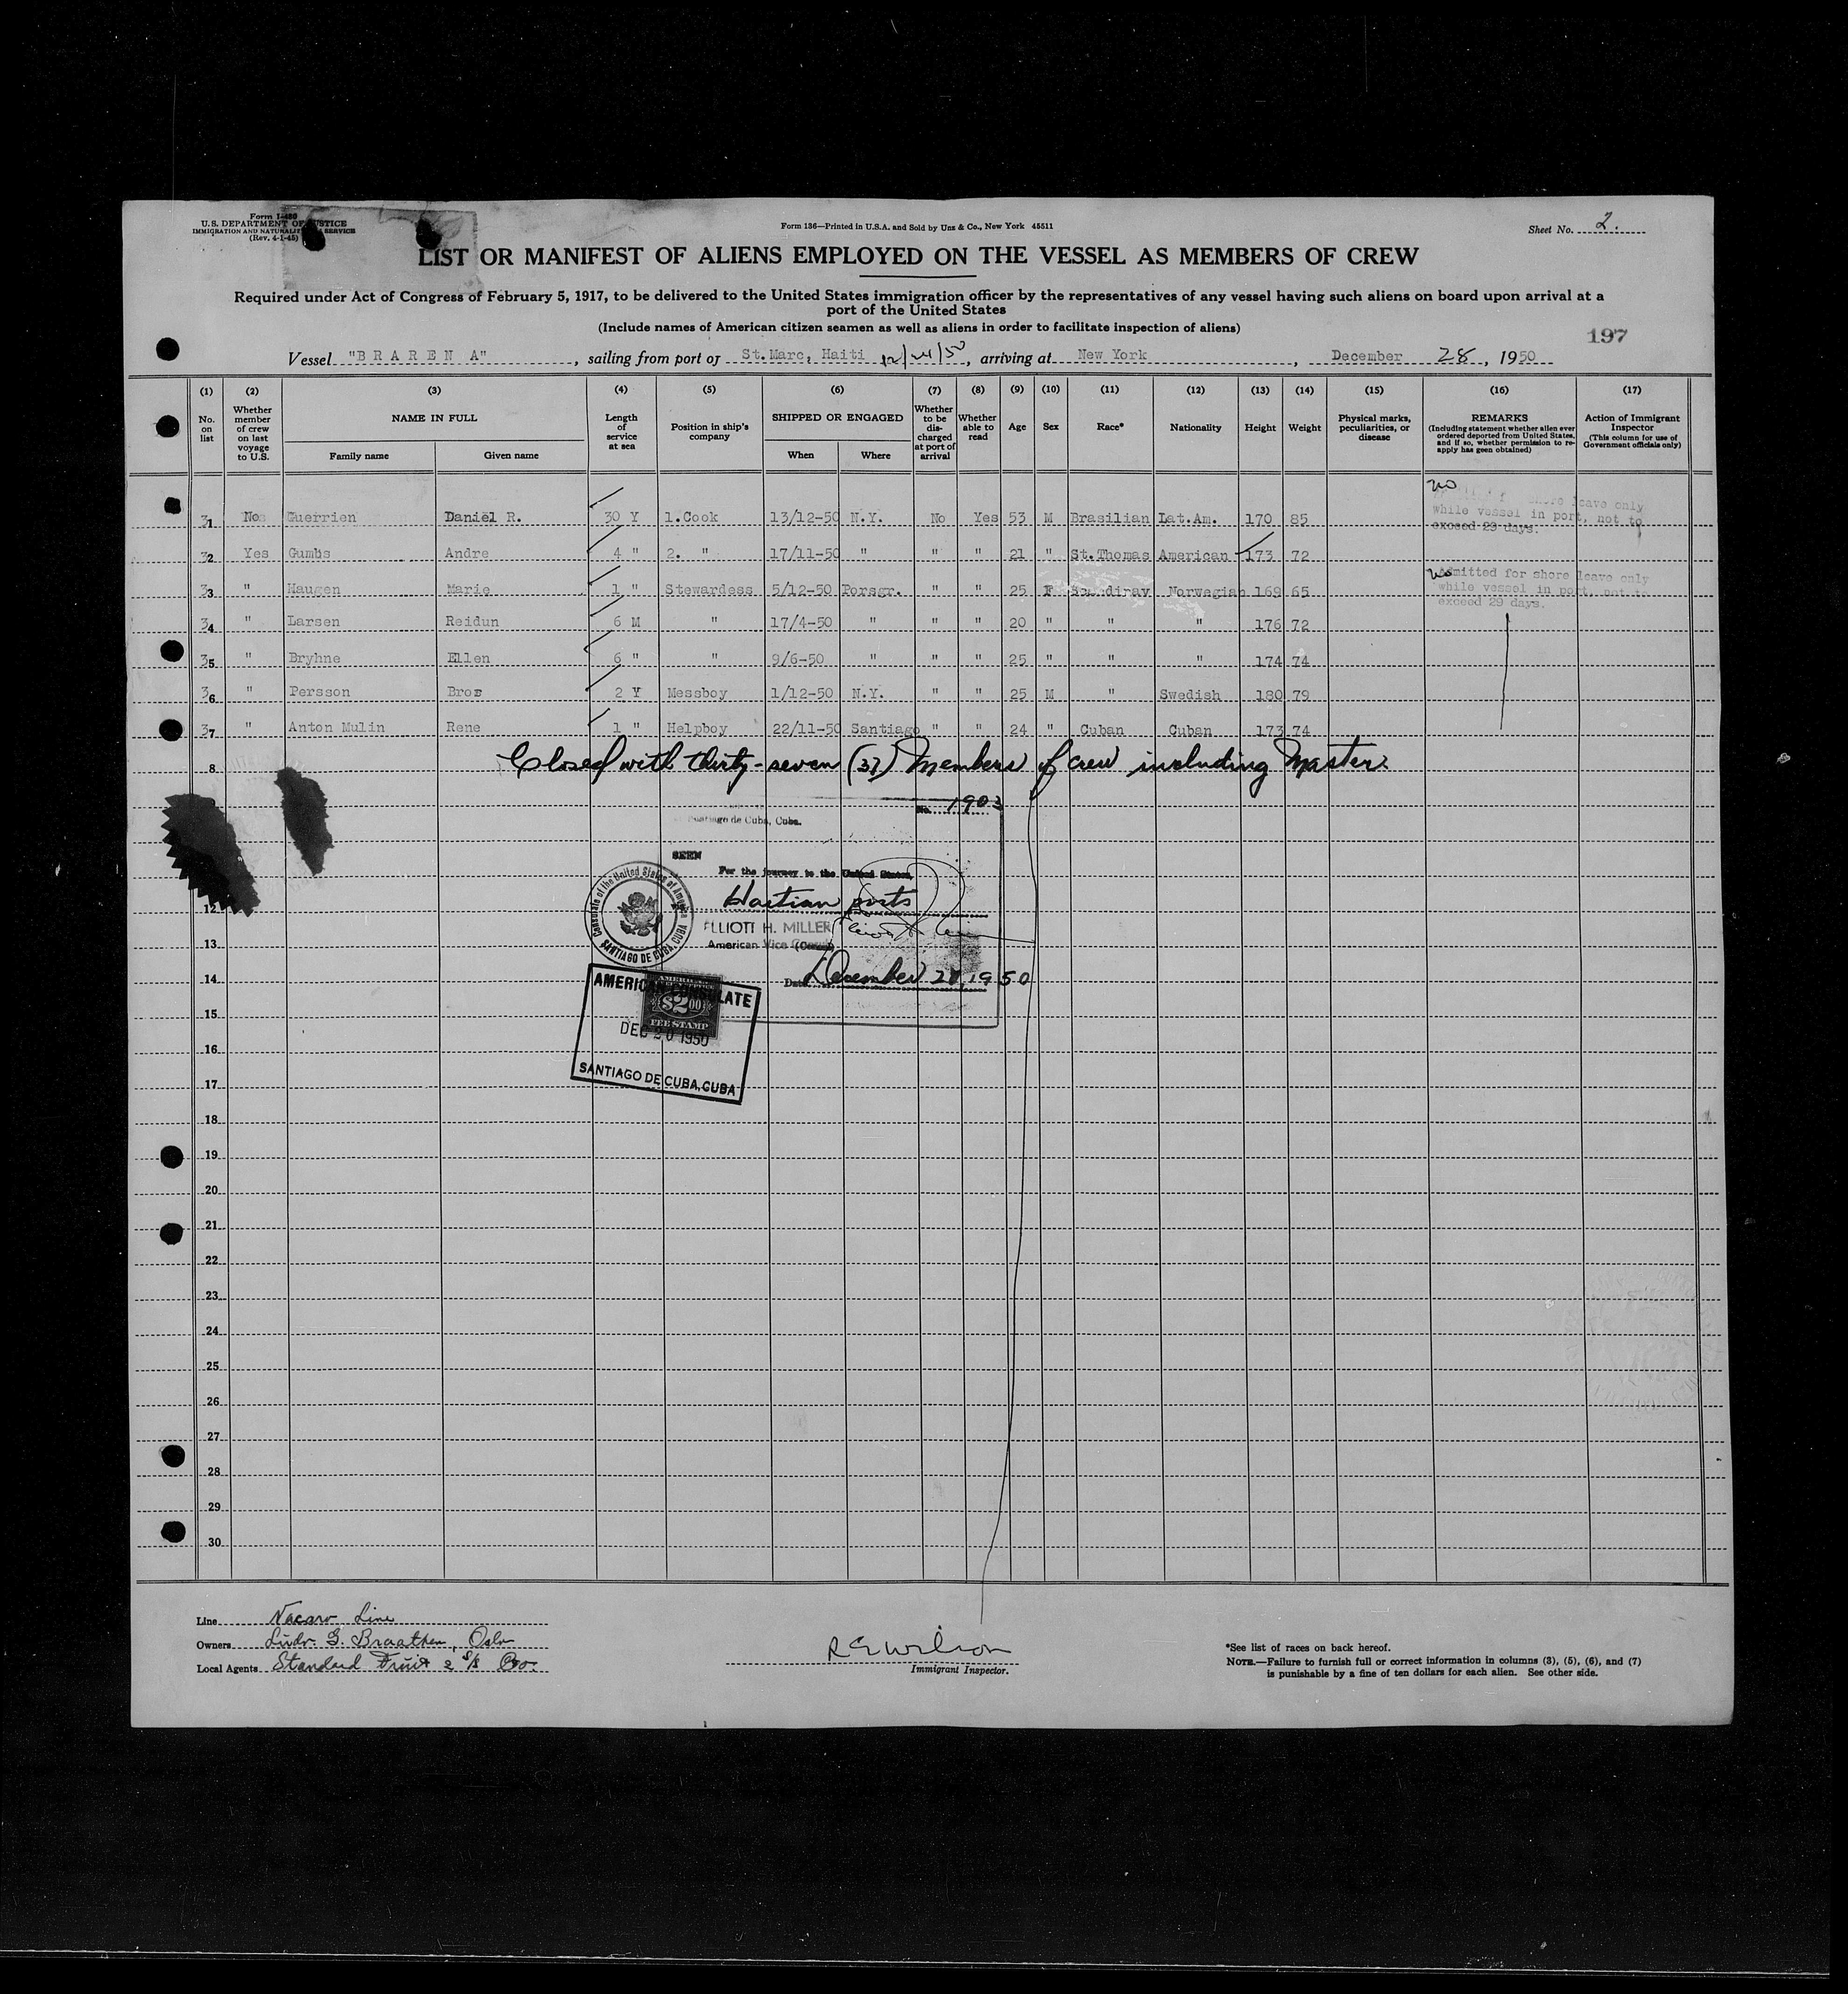 Form I-480
U.S. DEPARTMENT OF JUSTICE
IMMIGRATION AND NATURALIZATION SERVICE
(Rev. 4-1-45)
Form 136—Printed in U.S.A. and Sold by Unz & Co., New York 45511
Sheet No. 2.
LIST OR MANIFEST OF ALIENS EMPLOYED ON THE VESSEL AS MEMBERS OF CREW
Required under Act of Congress of February 5, 1917, to be delivered to the United States immigration officer by the representatives of any vessel having such aliens on board upon arrival at a
port of the United States
(Include names of American citizen seamen as well as aliens in order to facilitate inspection of aliens)
197
Vessel "BRAREN A", sailing from port of St.Marc, Haiti 12/24/50, arriving at New York, December 28, 1950
(1) (2) (3) (4) (5) (6) (7) (8) (9) (10) (11) (12) (13) (14) (15) (16) (17)
No. on list
Whether member of crew on last voyage to U.S.
NAME IN FULL
Family name
Given name
Length of service at sea
Position in ship's company
SHIPPED OR ENGAGED
When
Where
Whether to be discharged at port of arrival
Whether able to read
Age
Sex
Race*
Nationality
Height
Weight
Physical marks, peculiarities, or disease
REMARKS
(Including statement whether alien ever ordered deported from United States, and if so, whether permission to re-apply has geen obtained)
Action of Immigrant Inspector
(This column for use of Government officials only)
31 No Guerrien Daniel R. 30 Y 1.Cook 13/12-50 N.Y. No Yes 53 M Brasilian Lat.Am. 170 85
no
shore leave only
while vessel in port, not to
exceed 29 days.
32 Yes Gumbs Andre 4 " 2. " 17/11-50 " " " 21 " St.Thomas American 173 72
33 " Haugen Marie 1 " Stewardess 5/12-50 Porsgr. " " 25 F Scandinav Norwegian 169 65
no Admitted for shore leave only
while vessel in port, not to
exceed 29 days.
34 " Larsen Reidun 6 M " 17/4-50 " " " 20 " " " 176 72
35 " Bryhne Ellen 6 " " 9/6-50 " " " 25 " " " 174 74
36 " Persson Bror 2 Y Messboy 1/12-50 N.Y. " " 25 M " Swedish 180 79
37 " Anton Mulin Rene 1 " Helpboy 22/11-50 Santiago " " 24 " Cuban Cuban 173 74
Closed with thirty-seven (37) Members of crew including Master.
8
No. 1903
Santiago de Cuba, Cuba.
SEEN
For the journey to the United States,
Haitian ports
12
ELLIOTT H. MILLER
American Vice Consul
Consulate of the United States of America
SANTIAGO DE CUBA, CUBA
13
Date December 20, 1950
14
AMERICAN CONSULATE
$2.00
FEE STAMP
DEC 20 1950
SANTIAGO DE CUBA, CUBA
15
16
17
18
19
20
21
22
23
24
25
26
27
28
29
30
Line Vacaro Line
Owners Ludv. G. Braathen, Oslo
Local Agents Standard Fruit & S/S Co.
R E Wilson
Immigrant Inspector.
*See list of races on back hereof.
NOTE.—Failure to furnish full or correct information in columns (3), (5), (6), and (7)
is punishable by a fine of ten dollars for each alien. See other side.